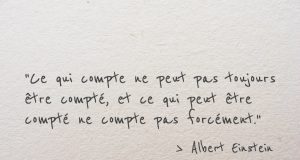 "Ce qui compte ne peut pas toujours
être compté, et ce qui peut être
compté ne compte pas forcément."
> Albert Einstein